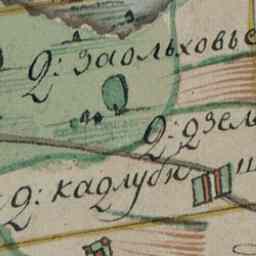 д: заольховье
д: дзел
д: кадлубы